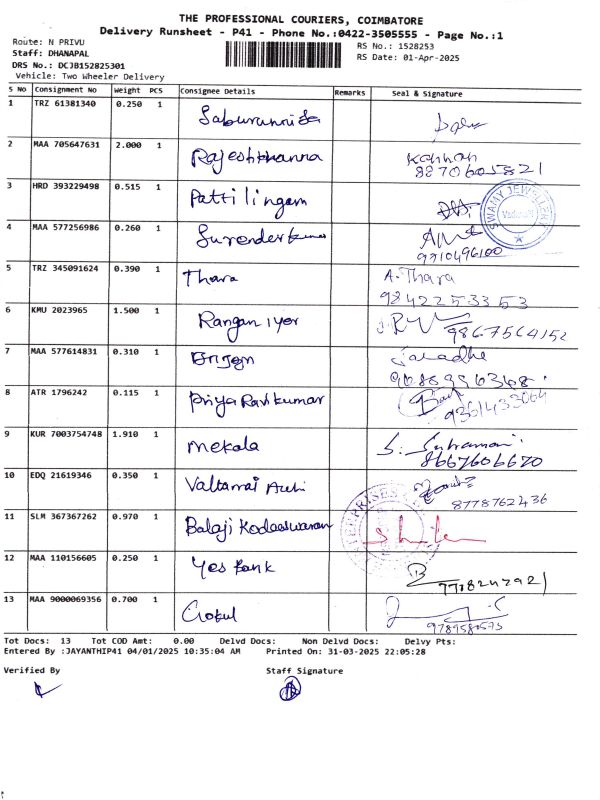 THE PROFESSIONAL COURIERS, COIMBATORE
Delivery Runsheet - P41 - Phone No.:0422-3505555 - Page No.:1
Route: N PRIVU
RS No.: 1528253
Staff: DHANAPAL
RS Date: 01-Apr-2025
DRS No.: DCJB152825301
Vehicle: Two Wheeler Delivery
S No Consignment No Weight PCS Consignee Details Remarks Seal & Signature
1 TRZ 61381340 0.250 1
2 MAA 705647631 2.000 1 Rajeshkhanna Kannan
8870605821
3 HRD 393229498 0.515 1 Pattilingam SWAMY JEWELLERY
4 MAA 577256986 0.260 1 Surenderkumar
9710496100
5 TRZ 345091624 0.390 1 Thara A. Thara
9842253353
6 KMU 2023965 1.500 1 Rangan iyer 9867564152
7 MAA 577614831 0.310 1
8 ATR 1796242 0.115 1 Priya Ravikumar 9361433064
9 KUR 7003754748 1.910 1 Mekala
8667606670
10 EDQ 21619346 0.350 1
8778762436
11 SLM 367367262 0.970 1 Balaji ENTERPRISES
12 MAA 110156605 0.250 1 Yes Bank
13 MAA 9000069356 0.700 1 Gokul
Tot Docs: 13 Tot COD Amt: 0.00 Delvd Docs: Non Delvd Docs: Delvy Pts:
Entered By :JAYANTHIP41 04/01/2025 10:35:04 AM Printed On: 31-03-2025 22:05:28
Verified By Staff Signature